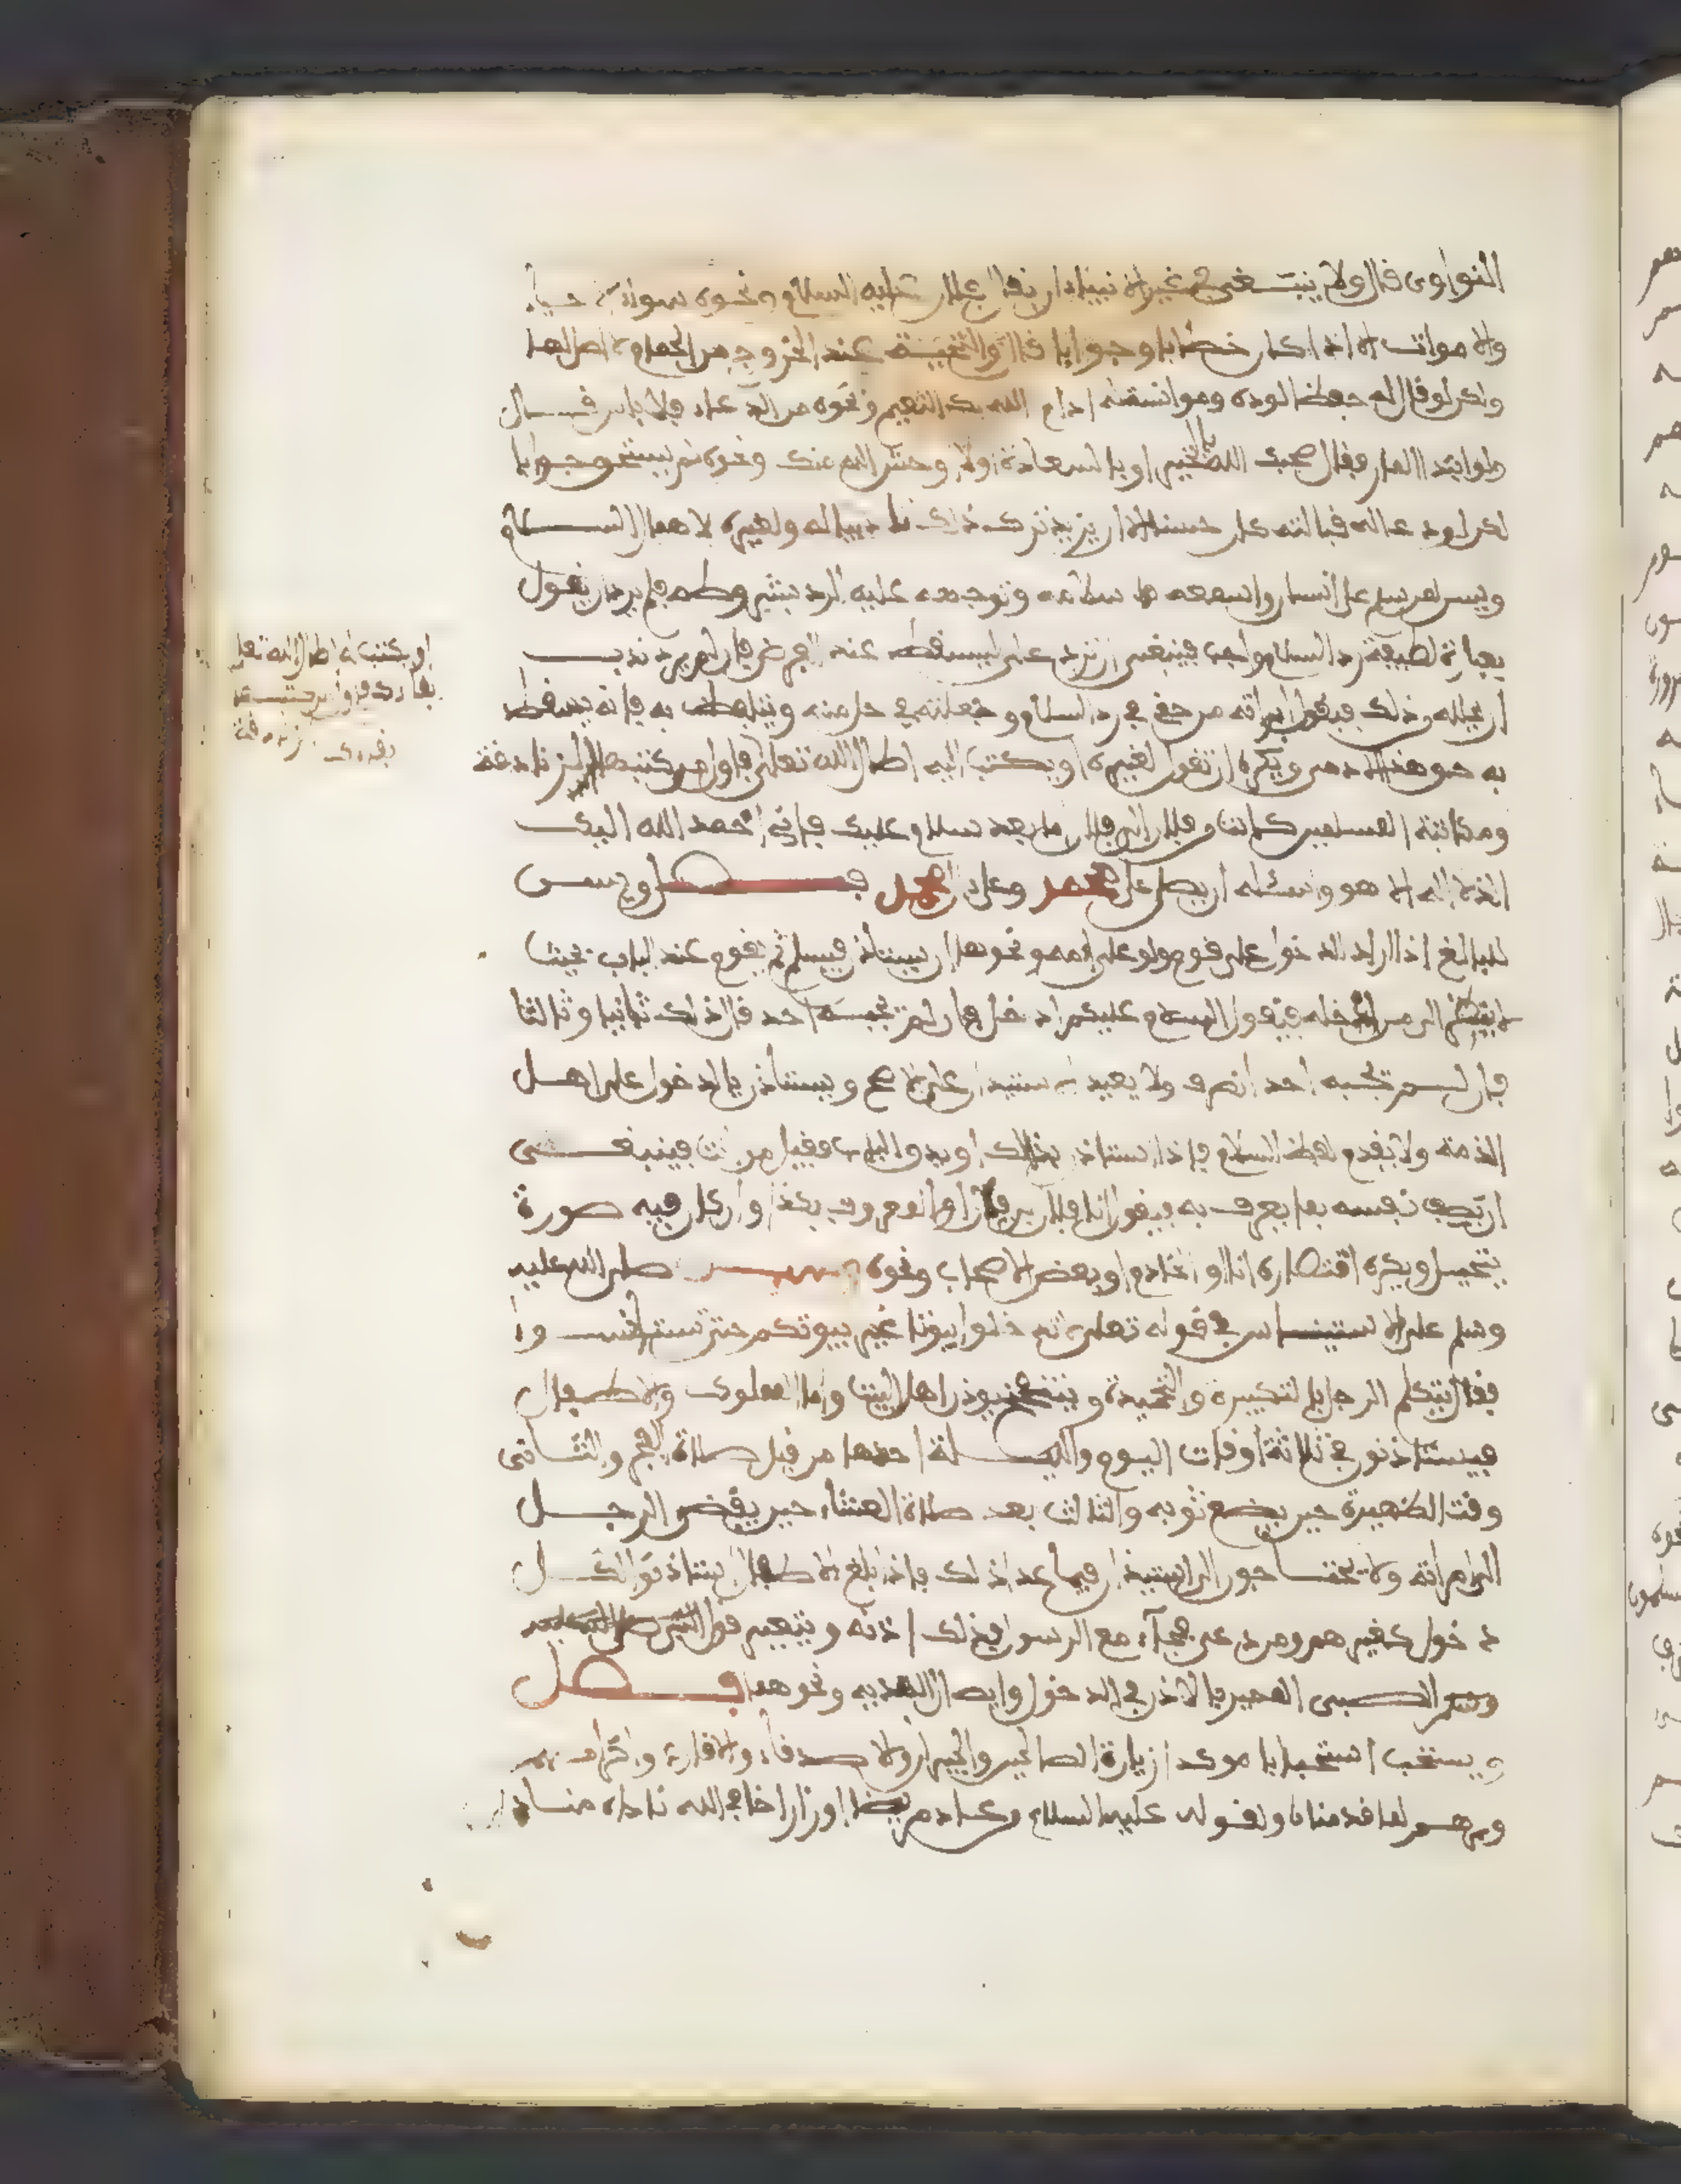 النواوى قال ولا ينبغى في غير الانبياء ان يقال فلان عليه السلام ونحوه سواء حيا
والاموات الا اذا كان خطابا وجوابا قال والتحية عند الخروج من الحمام لا اصل لها
ولكن لو قال له حفظا لوده وموانسته ادام الله لك النعيم ونحوه من الدعاء فلا باس قال
ولو ابتدا المار فقال صبحك الله بالخير او بالسعادة ولا اوحش الله منك ونحوه لم يستحق جوابا
لكن لو دعا له قبالته كان حسنا الا ان يريد ترك ذلك تاديبا له ولغيره لاهمال السلام
ويسن لمن سلم على انسان واسمعه سلامه وتوجه عليه الرد بشروطه فلم يرد ان يقول
بعبارة لطيفة رد السلام واجب فينبغى ان ترد على ليسقط عنك الفرض فان لم يرد ندب
ان يحلله وذلك فيقول ابراته من حقى في رد السلام وجعلته في حل منه ويتلفظ به فانه يسقط
به حق هذا الادمى ويكره ان تقول لغيره او يكتب اليه اطال الله تعلى فاول من كتبها الزنادقة
ومكاتبة المسلمين كانت من فلان الى فلان اما بعد سلام عليك فانى احمد الله اليك
الذى لا اله الا هو واسئله ان يصلى على محمد وعلى ال محمد فصل ويسن
للبالغ اذا اراد الدخول على قوم ولو على امه ونحوها ان يستاذن فيسلم ثم يقوم عند الباب بحيث
لا ينظر الى من داخله فيقول السلام عليكم ادخل فان لم تجبه احد قال ذلك ثانيا وثالثا
فان لم تجبه احد انصرف ولا يعيد الاستيذان على الاصح ويستاذن بالدخول على اهل
الذمة ولا يقدم لفظ السلام فاذا استاذن بذلك او بدق الباب فقيل من انت فينبغى
ان يصف نفسه بما يعرف به فيقول انا فلان بن فلان او المعروف بكذا وان كان فيه صورة
تجميل ويكره اقتصاره انا او الخادم او بعض الاصحاب ونحوه صلى الله عليه
وسلم على الاستيناس في قوله تعلى لا تدخلوا بيوتا غير بيوتكم حتى تستانسوا
فقال يتكلم الرجل بالتكبيرة والتحميدة ويتنحنح يوذن اهل البيت واما المملوك والاطفال
فيستاذنون في ثلاثة اوقات اليوم والليلة احدها من قبل صلاة الفجر والثانى
وقت الظهيرة حين يضع ثوبه والثالث بعد صلاة العشاء حين يفضى الرجل
الى امراته ولا يحتاجون الى استيذان فيما عدا ذلك فاذا بلغ الاطفال استاذنوا لكل
دخول كغيرهم ومن دعى فجآء مع الرسول فذلك اذنه
الصبى المميز بالاذن في الدخول وايصال الهدية ونحوهما فصل
ويستحب استحبابا موكدا زيارة الصالحين والجيران والاصدقاء والاقارب واكرامهم
وبرهم لما قدمناه ولقوله عليه السلام من عاد مريضا او زار اخا في الله ناداه مناد
او يكتب له اطال الله تعلى
بقاءك